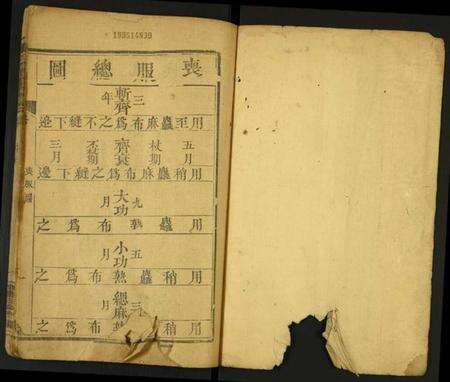 喪服總圖
斬衰
三年
用至麤麻布為之不縫下邊
齊衰
五月
杖期
不杖期
三月
用稍麤麻布為之縫下邊
大功
九月
用麤熟布為之
小功
五月
用稍麤熟布為之
緦麻
三月
用稍
布為之
喪服圖